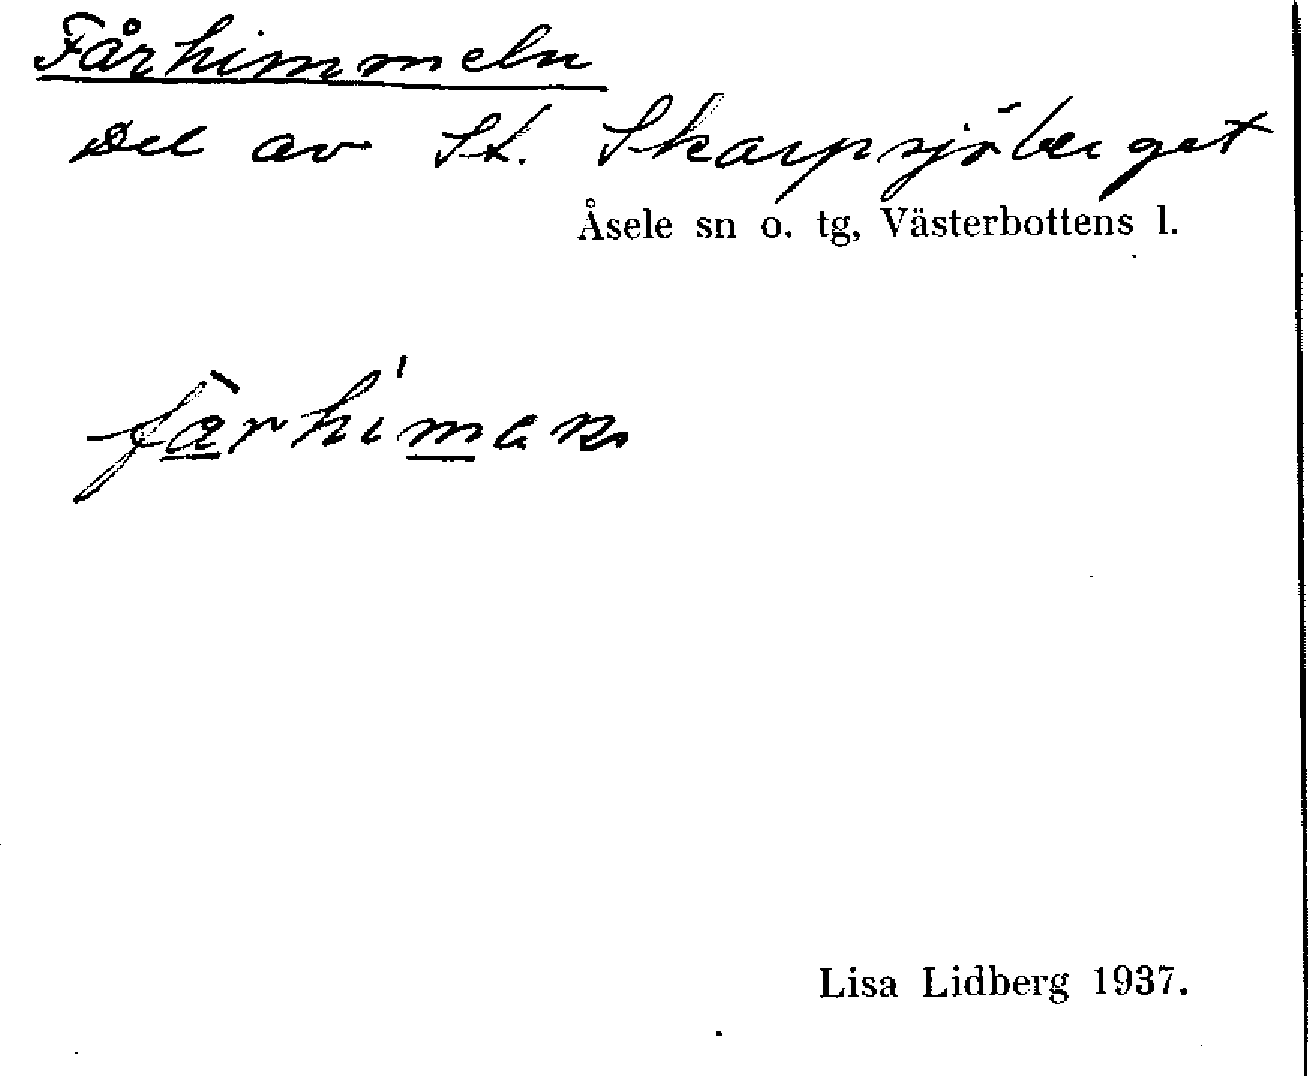 Fårhimmeln
Del av St. Skarpsjöberget
Åsele sn o. tg, Västerbottens l.
Lisa Lidberg 1937.